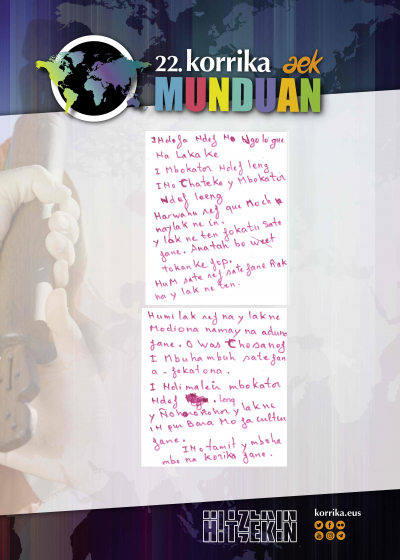 22. korrika aek
MUNDUAN
IMdefa Mdef Mo Ngologue
Na Laka Ke
I Mbokator Ndef leng
INo Chateke y Mbokator
Ndef laeng
Harwahu ref que Moch
naylak ne in.
y lak ne ten fokatu sate
fane. Anatah bo weet
tokanke fop.
HuM sate ref sate fane Rak
na y lak ne ten.
Humi lak ref na y lak ne
Modiona namay na aduna
fane. O was Chosanof
I Mbuhambuh satefan
a-fokatona.
I Mdimalein mbokator
Mdef . leng
y Ñohonohor y lak ne
IM pur Bara Mo fa culten
fane.
INo tamit y mbohe
mbo na Korika fane.
HITZEKIN
korrika.eus